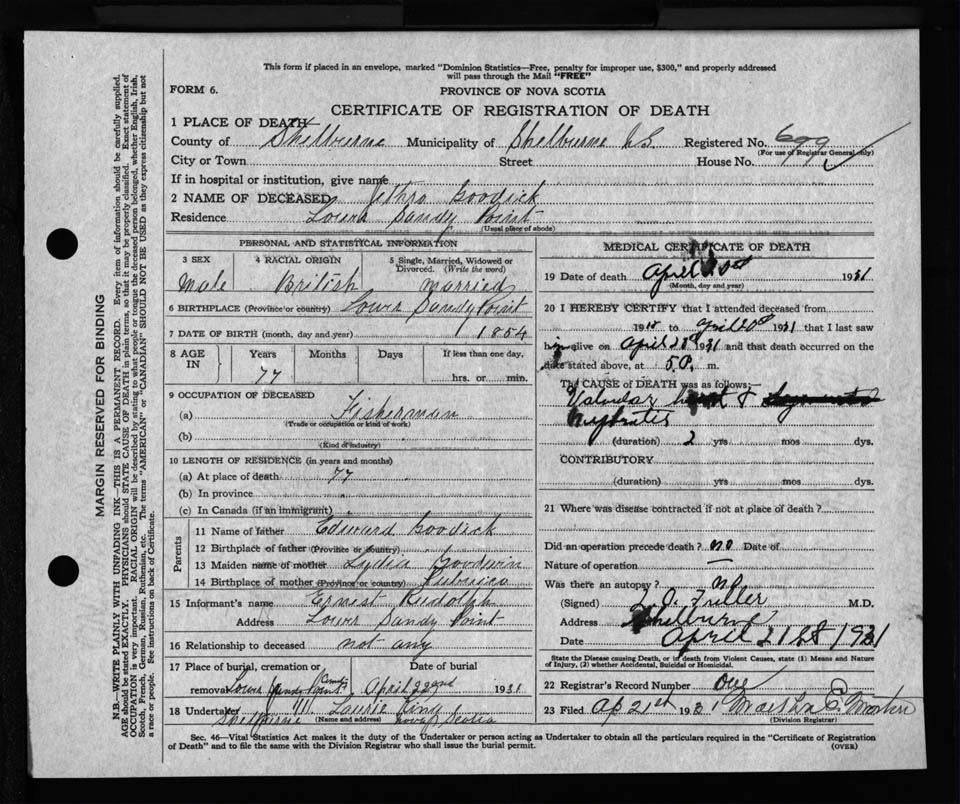 This form if placed in an envelope, marked "Dominion Statistics—Free, penalty for improper use, $300," and properly addressed
will pass through the Mail "FREE"
FORM 6.
PROVINCE OF NOVA SCOTIA
CERTIFICATE OF REGISTRATION OF DEATH
1 PLACE OF DEATH
County of Shelburne Municipality of Shelburne Registered No. 699
(For use of Registrar General only)
City or Town Street House No.
If in hospital or institution, give name
2 NAME OF DECEASED Jethro Goodick
Residence Lower Sandy Point
(Usual place of abode)
PERSONAL AND STATISTICAL INFORMATION
3 SEX 4 RACIAL ORIGIN 5 Single, Married, Widowed or Divorced. (Write the word)
Male British Married
6 BIRTHPLACE (Province or country) Lower Sandy Point
7 DATE OF BIRTH (month, day and year) 1854
8 AGE IN Years Months Days If less than one day,
77 hrs. or min.
9 OCCUPATION OF DECEASED
(a) Fisherman
(Trade or occupation or kind of work)
(b)
(Kind of industry)
10 LENGTH OF RESIDENCE (in years and months)
(a) At place of death 77
(b) In province "
(c) In Canada (if an immigrant) "
Parents
11 Name of father Edward Goodick
12 Birthplace of father (Province or country)
13 Maiden name of mother Lydia Goodwin
14 Birthplace of mother (Province or country) Pubnico
15 Informant's name Ernest Rudolph
Address Lower Sandy Point
16 Relationship to deceased not any
17 Place of burial, cremation or removal Lower Sandy Point Cemty Date of burial April 22nd 1931
18 Undertaker Laurie King
Shelburne (Name and address) Nova Scotia
MEDICAL CERTIFICATE OF DEATH
19 Date of death April 1931
(Month, day and year)
20 I HEREBY CERTIFY that I attended deceased from
19 to April 20 1931 that I last saw
him alive on April 1931 and that death occurred on the
date stated above, at 5 P. m.
The CAUSE of DEATH was as follows:—
Valvular heart &
Nephrites
(duration) 2 yrs mos dys.
CONTRIBUTORY
(duration) yrs mos dys.
21 Where was disease contracted if not at place of death?
Did an operation precede death? no Date of
Nature of operation —
Was there an autopsy? no
(Signed) Fuller M.D.
Address Shelburne
Date April 21st 1931
State the Disease causing Death, or in death from Violent Causes, state (1) Means and Nature of Injury, (2) whether Accidental, Suicidal or Homicidal.
22 Registrar's Record Number one
23 Filed Ap 21st 1931 Martha E.
(Division Registrar)
Sec. 46—Vital Statistics Act makes it the duty of the Undertaker or person acting as Undertaker to obtain all the particulars required in the "Certificate of Registration
of Death" and to file the same with the Division Registrar who shall issue the burial permit.
(OVER)
MARGIN RESERVED FOR BINDING
N.B.—WRITE PLAINLY WITH UNFADING INK—THIS IS A PERMANENT RECORD. Every item of information should be carefully supplied.
AGE should be stated EXACTLY. PHYSICIANS should STATE CAUSE OF DEATH in plain terms, so that it may be properly classified. Exact statement of
OCCUPATION is very important. RACIAL ORIGIN will be described by stating to what people or tongue the deceased person belonged, whether English, Irish,
Scotch, French, German, Russian, Ruthenian, etc. The terms "AMERICAN" or "CANADIAN" SHOULD NOT BE USED as they express citizenship but not
a race or people. See instructions on back of Certificate.